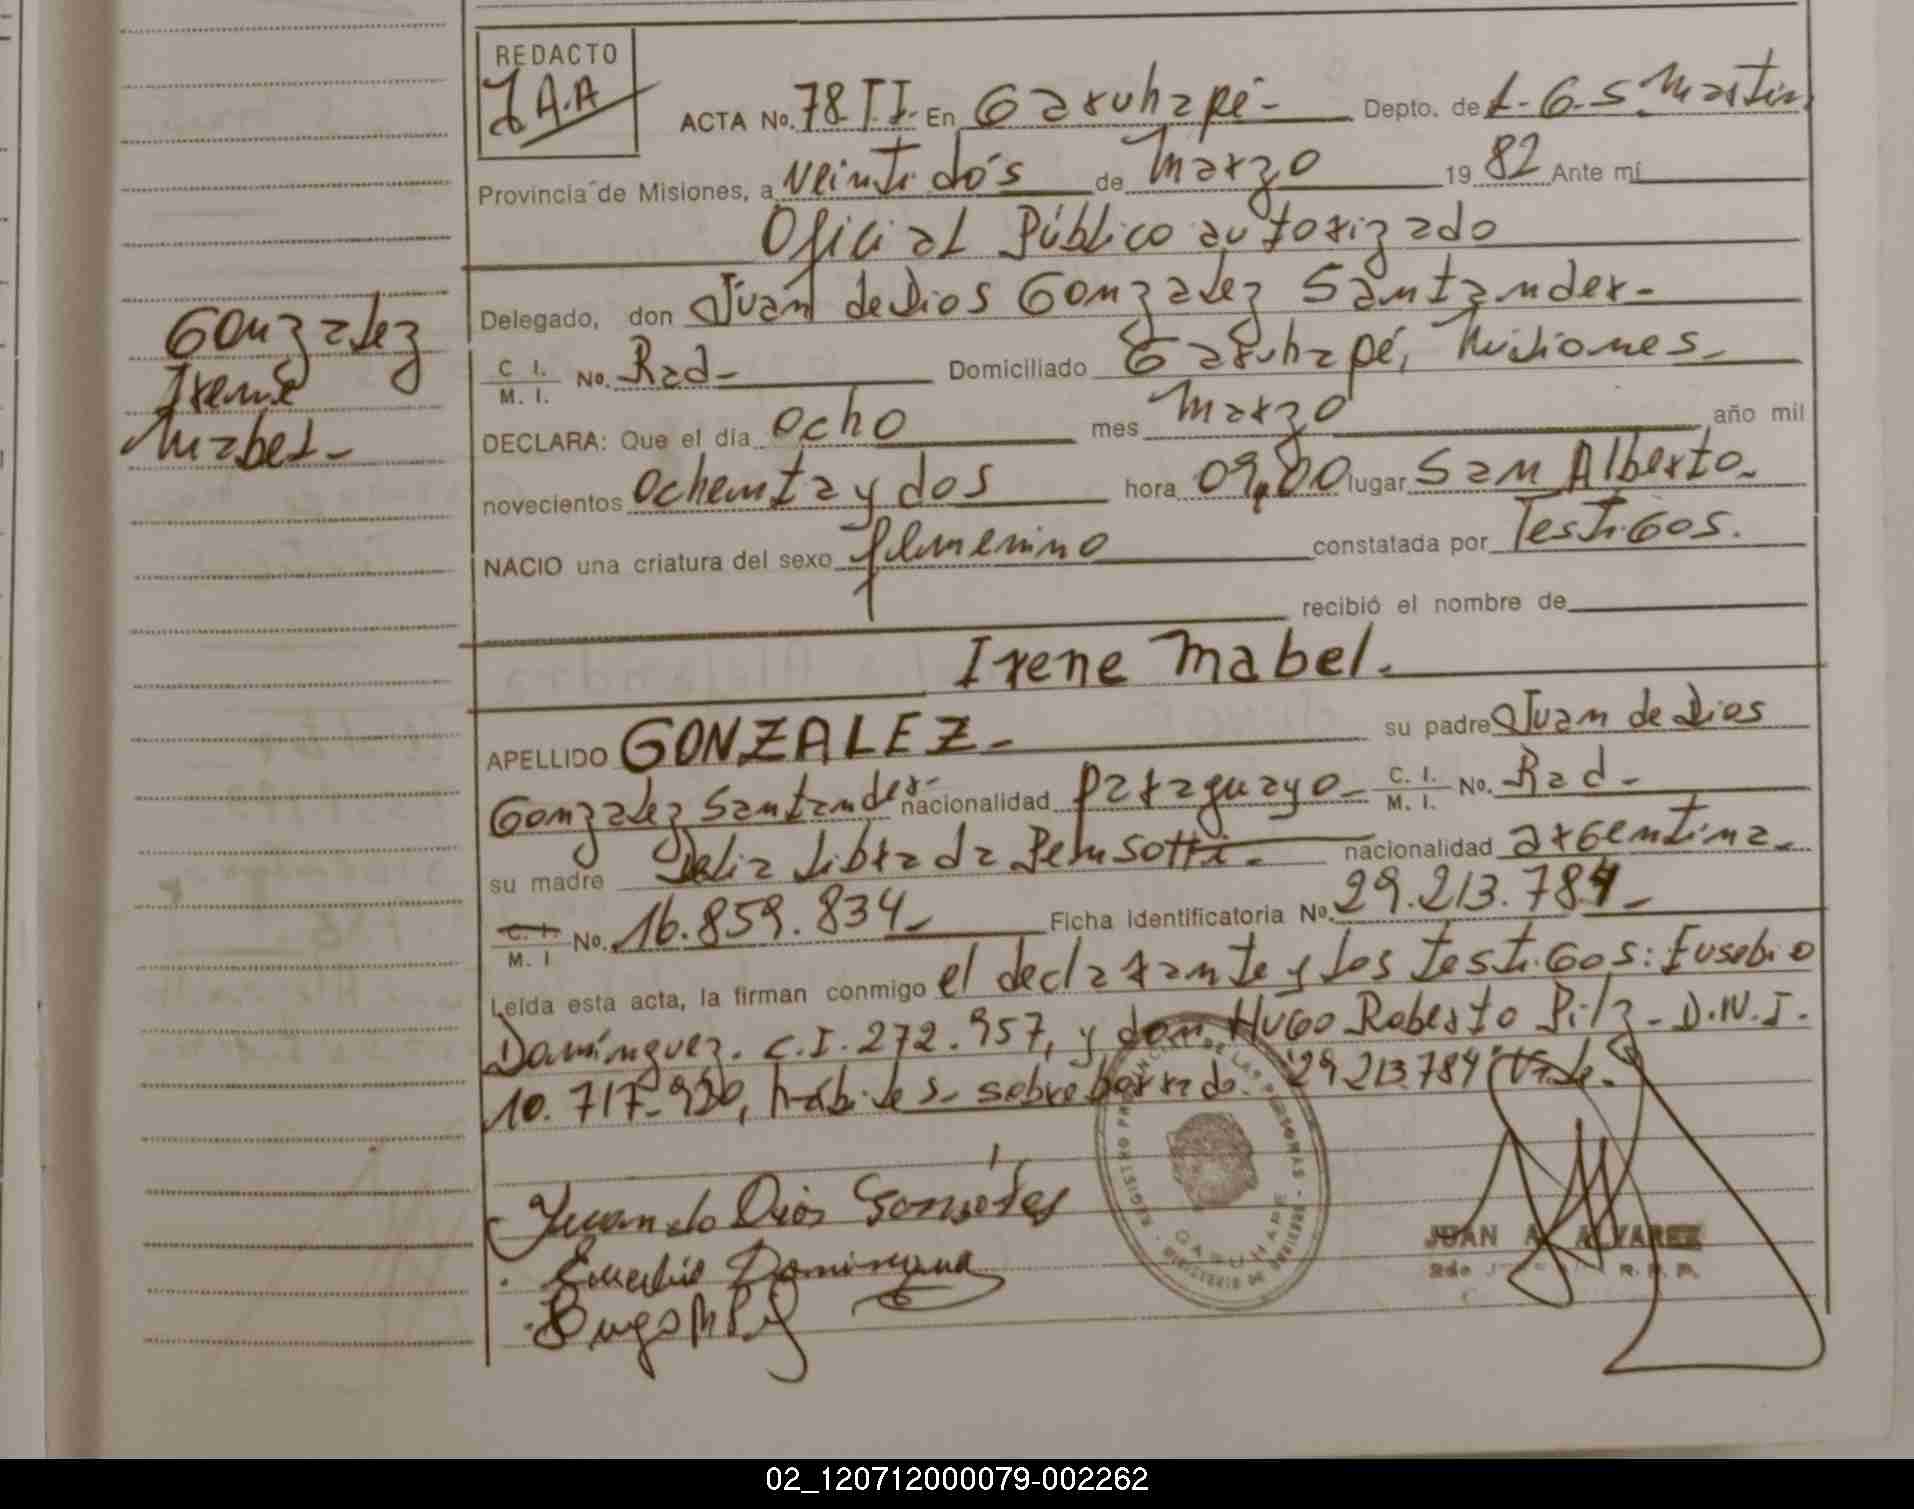 REDACTO
J A.A
ACTA No. 78 T.I. En Garuhapé - Depto. de L.G.S. Martin
Provincia de Misiones, a veintidós de Marzo 19 82 Ante mí
Oficial Público autorizado
Delegado, don Juan de Dios Gonzalez Santander -
C. I.
M. I. No. Rad - Domiciliado Garuhapé, Misiones -
DECLARA: Que el día ocho mes Marzo año mil
novecientos ochenta y dos hora 09,00 lugar San Alberto -
NACIO una criatura del sexo femenino constatada por Testigos.
recibió el nombre de
Irene Mabel. -
APELLIDO GONZALEZ - su padre Juan de Dios
Gonzalez Santander - nacionalidad paraguayo - C. I.
M. I. No. Rad -
su madre Delia Librada nacionalidad argentina -
C. I.
M. I No. 16.859.834 - Ficha identificatoria No. 29.213.784 -
Leída esta acta, la firman conmigo el declarante y los testigos: Eusebio
Domínguez. C.I. 272.957, y don Hugo Roberto Pilz - D.N.I.
10.717.930, hábiles - sobreborrado. "29.213.784" Vale.
Gonzalez
Irene
Mabel -
Juan de Dios Gonzales
Eusebio Dominguez
REGISTRO PROVINCIAL DE LAS PERSONAS - MINISTERIO DE GOBIERNO -
GARUHAPE
JUAN A. ALVAREZ
R. P. P.
02_120712000079-002262